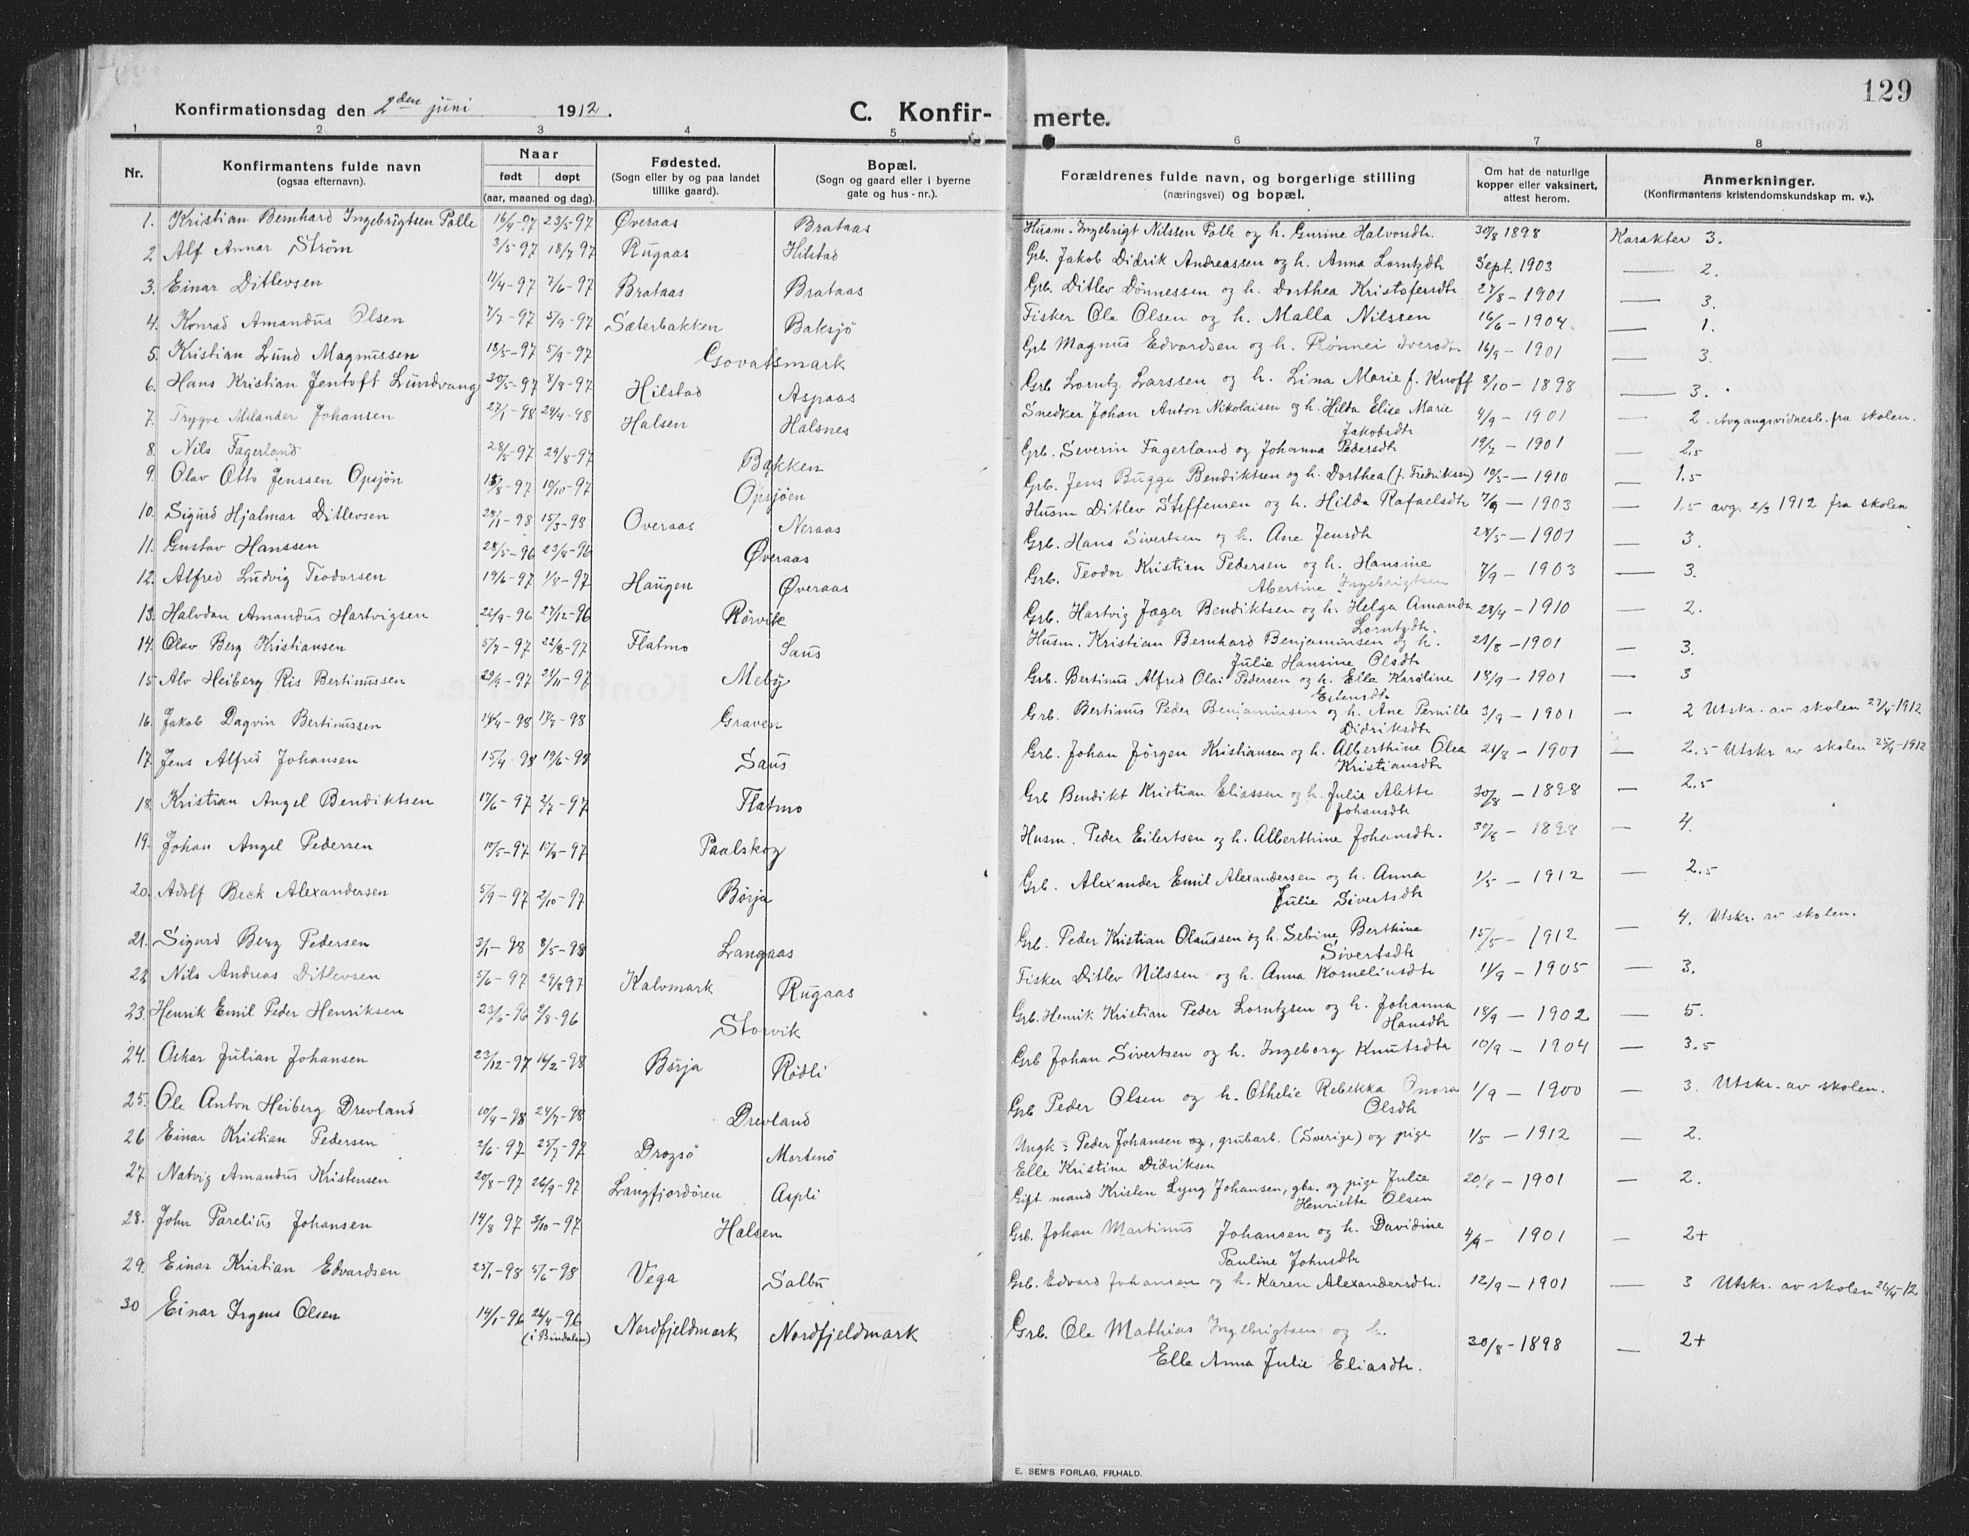 129
Konfirmationsdag den 2den juni 1912.
C. Konfir-
merte.
1 2 3 4 5 6 7 8
Nr.
Konfirmantens fulde navn
(ogsaa efternavn).
Naar
født døpt
(aar, maaned og dag).
Fødested.
(Sogn eller by og paa landet
tillike gaard).
Bopæl.
(Sogn og gaard eller i byerne
gate og hus-nr.).
Forældrenes fulde navn, og borgerlige stilling
(næringsvei) og bopæl.
Om hat de naturlige
kopper eller vaksinert,
attest herom.
Anmerkninger.
(Konfirmantens kristendomskundskap m. v.).
1. Kristian Bernhard Ingebrigtsen Palle 16/4-97 23/5-97 Øveraas Brataas Husm. Ingebrigt Nilsen Palle og h. Gurine Halvorsdtr. 30/8 1898 Karakter 3.
2 Alf Annar Strøm 3/5-97 18/7 97 Rugaas Hilstad Grb. Jakob Didrik Andreassen og h. Anna Lorntzdtr Sept. 1903 — 2.
3. Einar Ditlevsen 11/4-97 7/6-97 Brataas Brataas Grb. Ditlev Dønnessen og h. Dorthea Kristofersdtr 27/8-1901 — 3.
4. Konrad Amandus Olsen 7/7-97 5/9-97 Sæterbakken Baksjö Fisker Ole Olsen og h. Malla Nilssen 16/6-1904. — 1.
5. Kristian Lund Magnussen 18/5-97 5/9-97 Govatsmark Grb Magnus Edvardsen og h. Rønnei Iversdtr 16/9-1901 — 3.
6. Hans Kristian Jentoft Lundvang 30/5-97 8/8-97 Hilstad Aspaas Grb Lorntz Larssen og h. Lina Marie f. Knoff 8/10-1898 — 3.
7. Trygve Milander Johansen 27/1-98 24/4-98 Halsen Halsnes Snedker Johan Anton Nikolaisen og h. Hilda Elise Marie 4/9-1901 2. Avgangsvidnesb. fra skolen.
Jakobsdtr
8. Nils Fagerland 28/5-97 29/8-97 Bakken Grb. Severin Fagerland og Johanna Pedersdtr 19/7-1901 — 2.5
9. Olav Otto Jenssen Opsjøn 18/8-97 19/10-97 Opsjøen Grb. Jens Bugge Bendiktsen og h. Dorthea (f. Fredriksen) 10/5-1910 — 1.5
10. Sigurd Hjalmar Ditlevsen 28/1-98 15/3-98 Overaas Neraas Husm Ditlev Steffensen og h. Hilda Rafaelsdtr 7/9-1903 — 1.5 avg. 2/3 1912 fra skolen
11. Gustav Hanssen 28/5-96 23/8-96 Øveraas Grb. Hans Sivertsen og h. Ane Jensdtr 28/5-1901 — 3.
12. Alfred Ludvig Teodorsen 19/6-97 1/8-97 Haugen Øveraas Grb. Teodor Kristian Pedersen og h. Hansine 7/9-1903 — 3.
Abertine Ingebrigtsen
13. Halvdan Amandus Hartvigsen 22/9-96 27/12-96 Rørvik Grb. Hartvig Jæger Bendiktsen og h. Helga Amanda 28/4-1910 — 2.
Lorntzdtr.
14. Olav Berg Kristiansen 5/7-97 22/8-97 Flatmo Saus Husm. Kristian Bernhard Benjaminsen og h. 29/8-1901 — 3.
Julie Hansine Olsdtr
15 Alv Heiberg Ris Bertinussen 22/9-97 21/11-97 Meby Grb. Bertinus Alfred Olai Pedersen og h. Elle Karoline 18/9-1901 — 3
Estensdtr
16. Jakob Dagvin Bertinussen 14/4-98 17/7-98 Graven Grb. Bertinus Peder Benjaminsen og h. Ane Pernille 3/9-1901 — 2 Utskr. av skolen 27/4-1912
Didriksdtr
17. Jens Alfred Johansen 15/4-98 19/6-98 Saus Grb. Johan Jørgen Kristiansen og h. Alberthine Olea 21/8-1901 — 2.5 Utskr av skolen 25/4-1912
Kristiansdtr
18. Kristian Angel Bendiktsen 17/6-97 2/7-97 Flatmo Grb Bendikt Kristian Eliassen og h. Julie Alette 30/8-1898 — 2.5
Johansdtr
19. Johan Angel Pedersen 10/5-97 10/8-97 Paalskog Husm. Peder Eilertsen og h. Alberthine Johansdtr. 30/8-1898 — 4.
20. Adolf Beck Alexandersen 5/9-97 2/10-97 Børja Grb. Alexander Emil Alexandersen og h. Anna 1/5-1912 — 2.5
Julie Sivertsdtr
21. Sigurd Berg Pedersen 3/1-98 8/5-98 Langaas Grb. Peder Kristian Olaussen og h. Sebine Berthine 15/5-1912 — 4. Utskr. av skolen.
Sivertsdtr
22. Nils Andreas Ditlevsen 5/6-97 29/8 97 Kalvmark Rugaas Fisker Ditlev Nilssen og h. Anna Korneliusdtr 11/9-1905 — 3.
23. Henrik Emil Peder Henriksen 23/6-96 2/8-96 Storvik Grb. Henrik Kristian Peder Lorntzsen og h. Johanna 18/9-1902 — 5.
Hansdtr
24. Oskar Julian Johansen 23/12-97 16/2-98 Børja Rødli Grb Johan Sivertsen og h. Ingeborg Knutsdtr 10/9-1904 — 3.5
25. Ole Anton Heiberg Drevland 10/4-98 24/7-98 Drevland Grb Peder Olsen og h. Othelie Rebekka Onora 1/9-1900 — 3. Utskr. av skolen.
Olsdtr
26 Einar Kristian Pedersen 2/6-97 25/7-97 Drogsö Mortenö Ungk: Peder Johansen og, grubarb. (Sverige) og pige 1/5-1912 — 2.
Elle Kristine Didriksen
27. Natvig Amandus Kristensen 20/8-97 26/9-97 Langfjordören Aspli Gift mand Kristen Lyng Johansen, gbr. og pige Julie 20/8-1901 — 2.
Henriette Olsen
28. John Parelius Johansen 14/8 97 3/10-97 Halsen Grb. Johan Martinus Johansen og h. Davidine 4/9-1901 — 2+
Pauline Johnsdtr
29. Einar Kristian Edvardsen 25/1-98 5/6-98 Vega Salbu Grb. Edvard Johansen og h. Karen Alexandersdtr. 12/9-1901 — 3 Utskr. av skolen 26/4-12
30 Einar Irgens Olsen 14/1-96 26/4-96 Nordfjeldmark Nordfjeldmark Grb. Ole Mathias Ingebrigtsen og h. 30/8-1898 — 2+
(i Bindalen)
Elle Anna Julie Eliasdtr.
E. SEM'S FORLAG, FR.HALD.